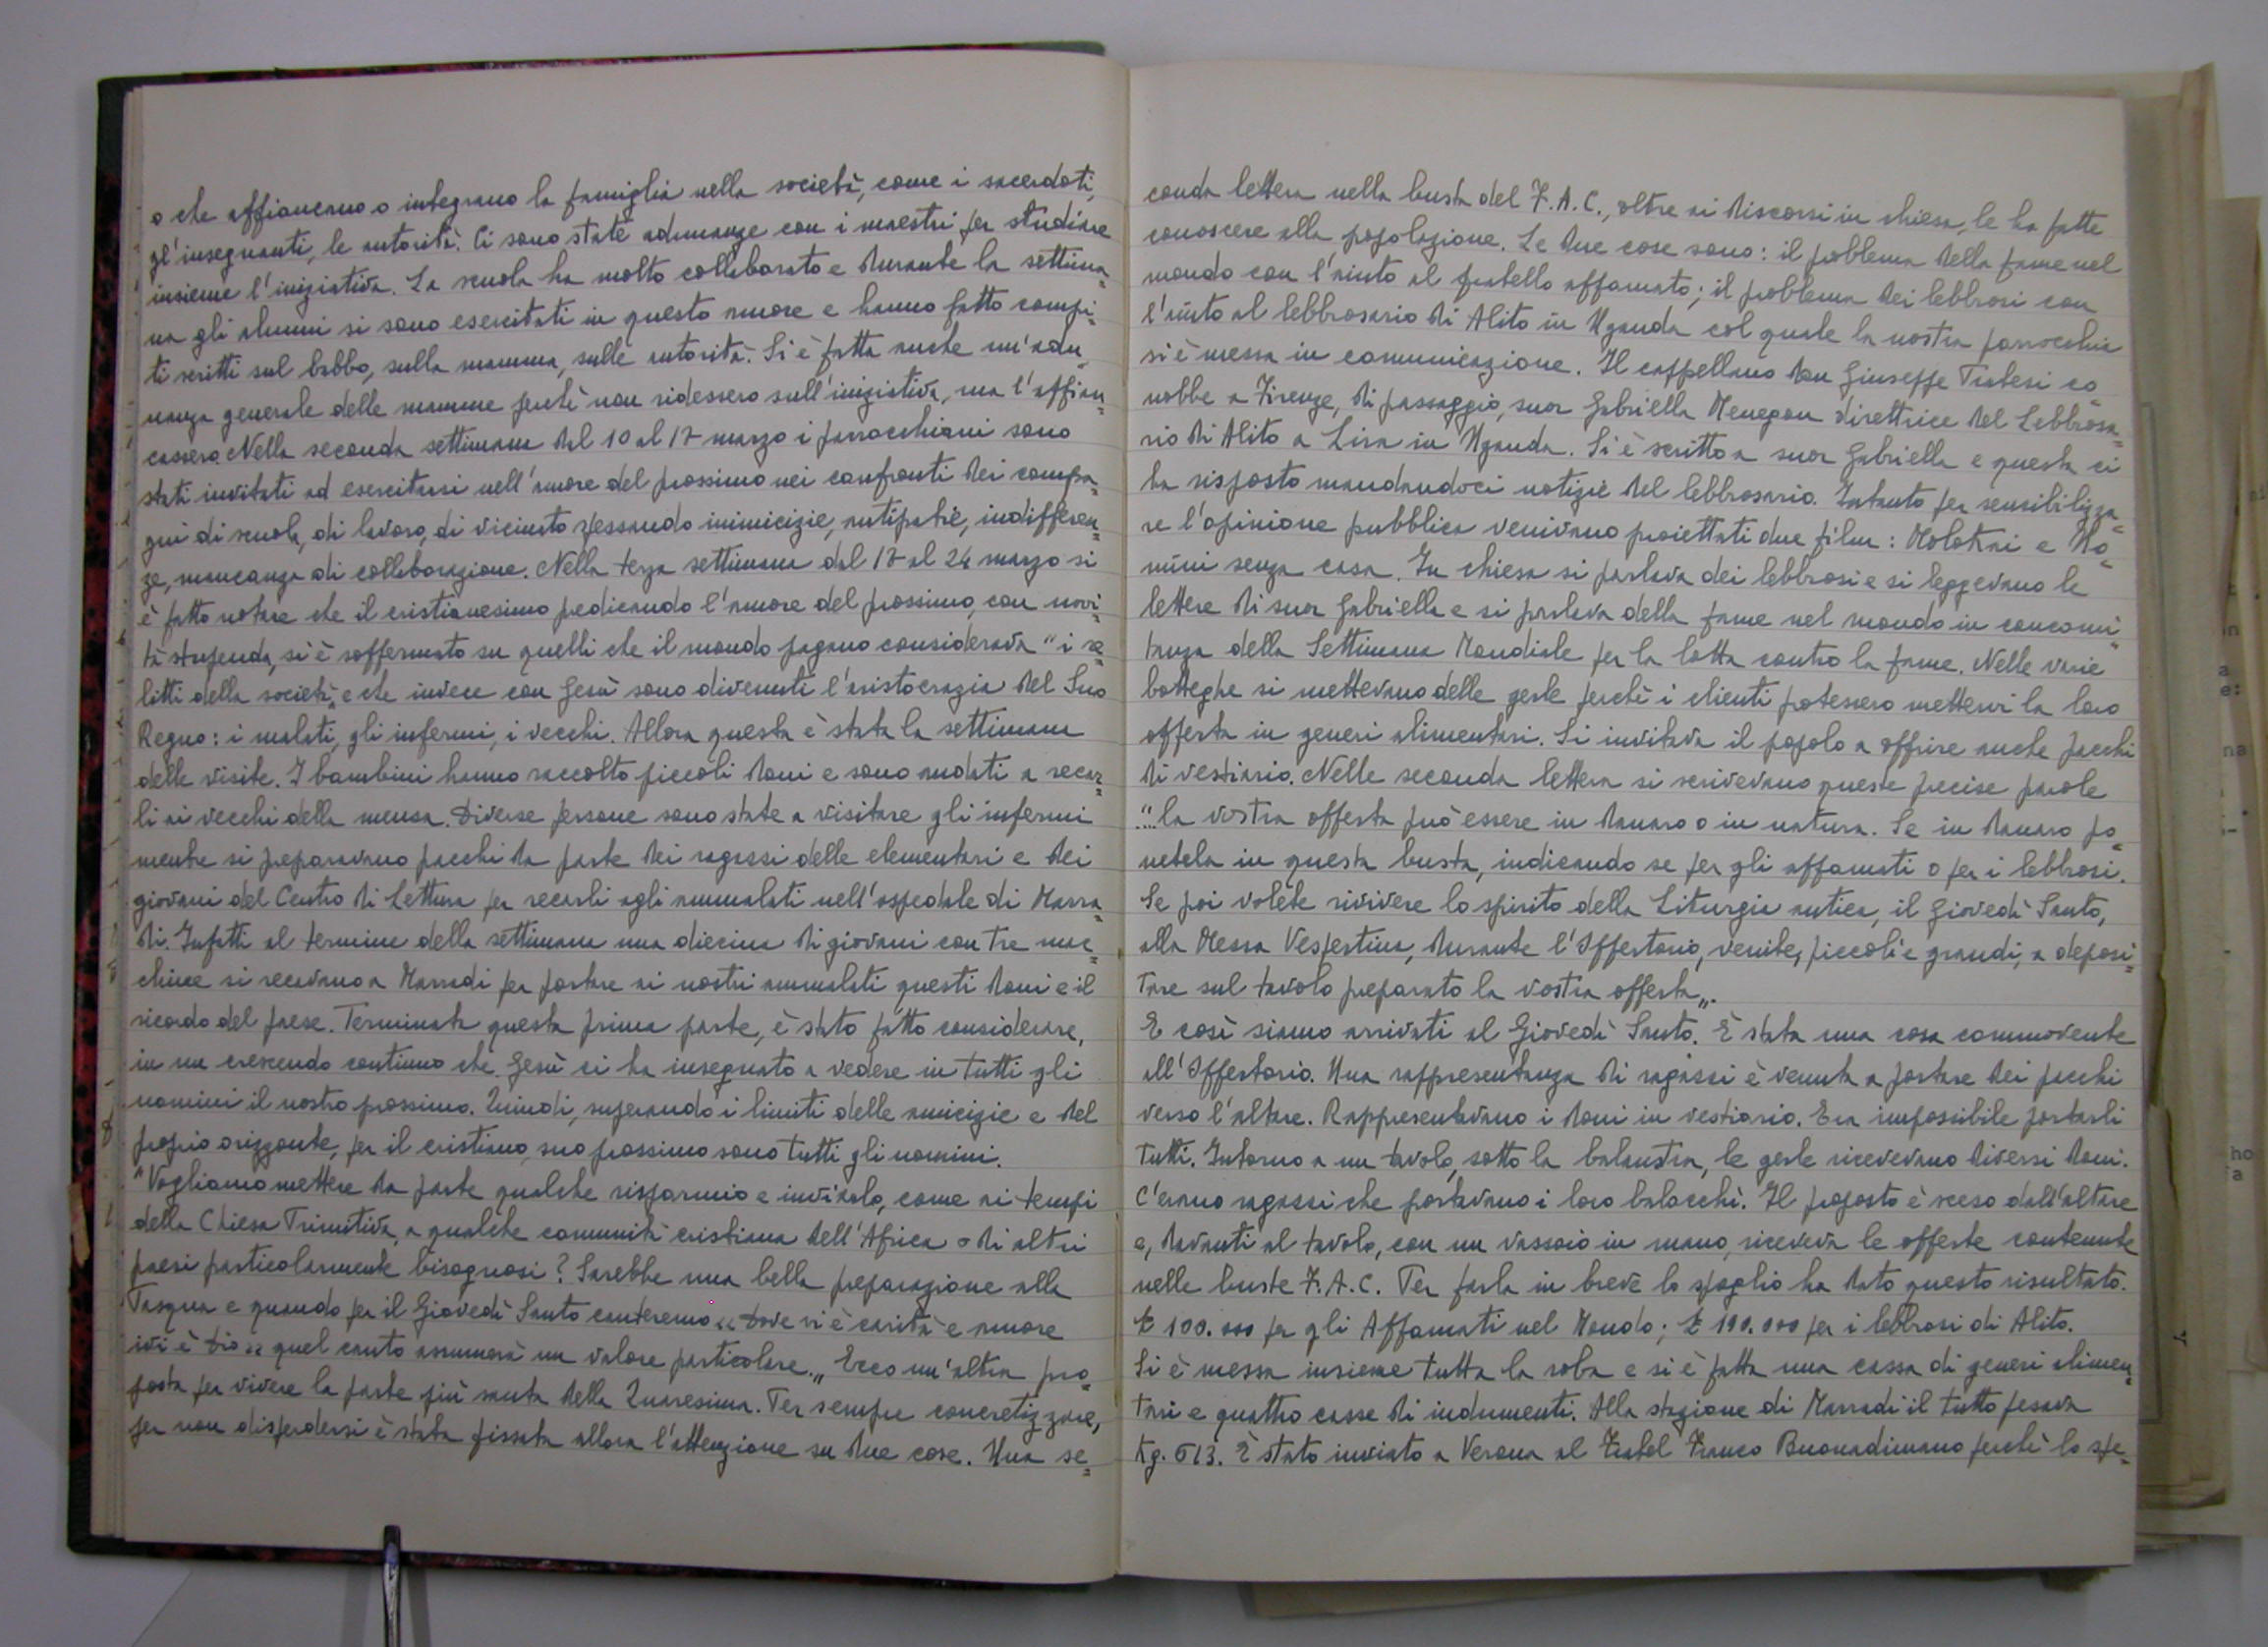 o che affiancano o integrano la famiglia nella società, come i sacerdoti,
gl'insegnanti, le autorità. Ci sono state adunanze con i maestri per studiare
insieme l'iniziativa. La scuola ha molto collaborato e durante la settima=
na gli alunni si sono esercitati in questo amore e hanno fatto compi=
ti scritti sul babbo, sulla mamma, sulle autorità. Si è fatta anche un'adu=
nanza generale delle mamme perchè non ridessero sull'iniziativa, ma l'affian=
cassero. Nella seconda settimana dal 10 al 17 marzo i parrocchiani sono
stati invitati ad esercitarsi nell'amore del prossimo nei confronti dei compa=
gni di scuola, di lavoro, di vicinato spessando inimicizie, antipatie, indifferen=
ze, mancanza di collaborazione. Nella terza settimana dal 17 al 24 marzo si
è fatto notare che il cristianesimo predicando l'amore del prossimo, con novi=
tà stupenda, si è soffermato su quelli che il mondo pagano considerava "i re=
litti della società" e che invece con Gesù sono divenuti l'aristocrazia del Suo
Regno: i malati, gli infermi, i vecchi. Allora questa è stata la settimana
delle visite. I bambini hanno raccolto piccoli doni e sono andati a recar=
li ai vecchi della mensa. Diverse persone sono state a visitare gli infermi
mentre si preparavano pacchi da parte dei ragazzi delle elementari e dei
giovani del Centro di Lettura per recarli agli ammalati nell'ospedale di Marra=
di. Infatti al termine della settimana una diecina di giovani con tre mac=
chine si recavano a Marradi per portare ai nostri ammalati questi doni e il
ricordo del paese. Terminata questa prima parte, è stato fatto considerare,
in un crescendo continuo che Gesù ci ha insegnato a vedere in tutti gli
uomini il nostro prossimo. Quindi, superando i limiti delle amicizie e del
proprio orizzonte, per il cristiano, suo prossimo sono tutti gli uomini.
"Vogliamo mettere da parte qualche risparmio e inviarlo, come ai tempi
della Chiesa Primitiva, a qualche comunità cristiana dell'Africa o di altri
paesi particolarmente bisognosi? Sarebbe una bella preparazione alla
Pasqua e quando per il Giovedì Santo canteremo "Dove vi è carità e amore
ivi è Dio" quel canto assumerà un valore particolare." Ecco un'altra pro=
posta per vivere la parte più santa della Quaresima. Per sempre concretizzare,
per non disperdersi è stata fissata allora l'attenzione su due cose. Una se=
conda lettera nella busta del F.A.C., oltre ai discorsi in chiesa, le ha fatte
conoscere alla popolazione. Le due cose sono: il problema della fame nel
mondo con l'aiuto al fratello affamato; il problema dei lebbrosi con
l'aiuto al lebbrosario di Alito in Uganda col quale la nostra parrocchia
si è messa in comunicazione. Il cappellano don Giuseppe Tratesi co=
nobbe a Firenze, di passaggio, suor Gabriella Menegon direttrice del Lebbrosa=
rio di Alito a Lira in Uganda. Si è scritto a suor Gabriella e questa ci
ha risposto mandandoci notizie del lebbrosario. Intanto per sensibilizza=
re l'opinione pubblica venivano proiettati due film: Molokai e Uo=
mini senza casa. In chiesa si parlava dei lebbrosi e si leggevano le
lettere di suor Gabriella e si parlava della fame nel mondo in concomi=
tanza della Settimana Mondiale per la lotta contro la fame. Nelle varie
botteghe si mettevano delle gerle perchè i clienti potessero mettervi la loro
offerta in generi alimentari. Si invitava il popolo a offrire anche pacchi
di vestiario. Nelle seconda lettera si scrivevano queste precise parole
"...la vostra offerta può essere in danaro o in natura. Se in danaro po=
netela in questa busta, indicando se per gli affamati o per i lebbrosi.
Se poi volete rivivere lo spirito della Liturgia antica, il Giovedì Santo,
alla Messa Vespertina, durante l'Offertorio, venite, piccoli e grandi, a deposi=
tare sul tavolo preparato la vostra offerta".
E così siamo arrivati al Giovedì Santo. È stata una cosa commovente
all'Offertorio. Una rappresentanza di ragazzi è venuta a portare dei pacchi
verso l'altare. Rappresentavano i doni in vestiario. Era impossibile portarli
tutti. Intorno a un tavolo, sotto la balaustra, le gerle ricevevano diversi doni.
C'erano ragazzi che portavano i loro balocchi. Il proposto è sceso dall'altare
e, davanti al tavolo, con un vassoio in mano, riceveva le offerte contenute
nelle buste F.A.C. Per farla in breve lo spoglio ha dato questo risultato.
£ 100.000 per gli Affamati nel Mondo; £ 190.000 per i lebbrosi di Alito.
Si è messa insieme tutta la roba e si è fatta una cassa di generi alimen=
tari e quattro casse di indumenti. Alla stazione di Marradi il tutto pesava
Kg. 613. È stato inviato a Verona al Fratel Franco Buonadimano perchè lo spe=